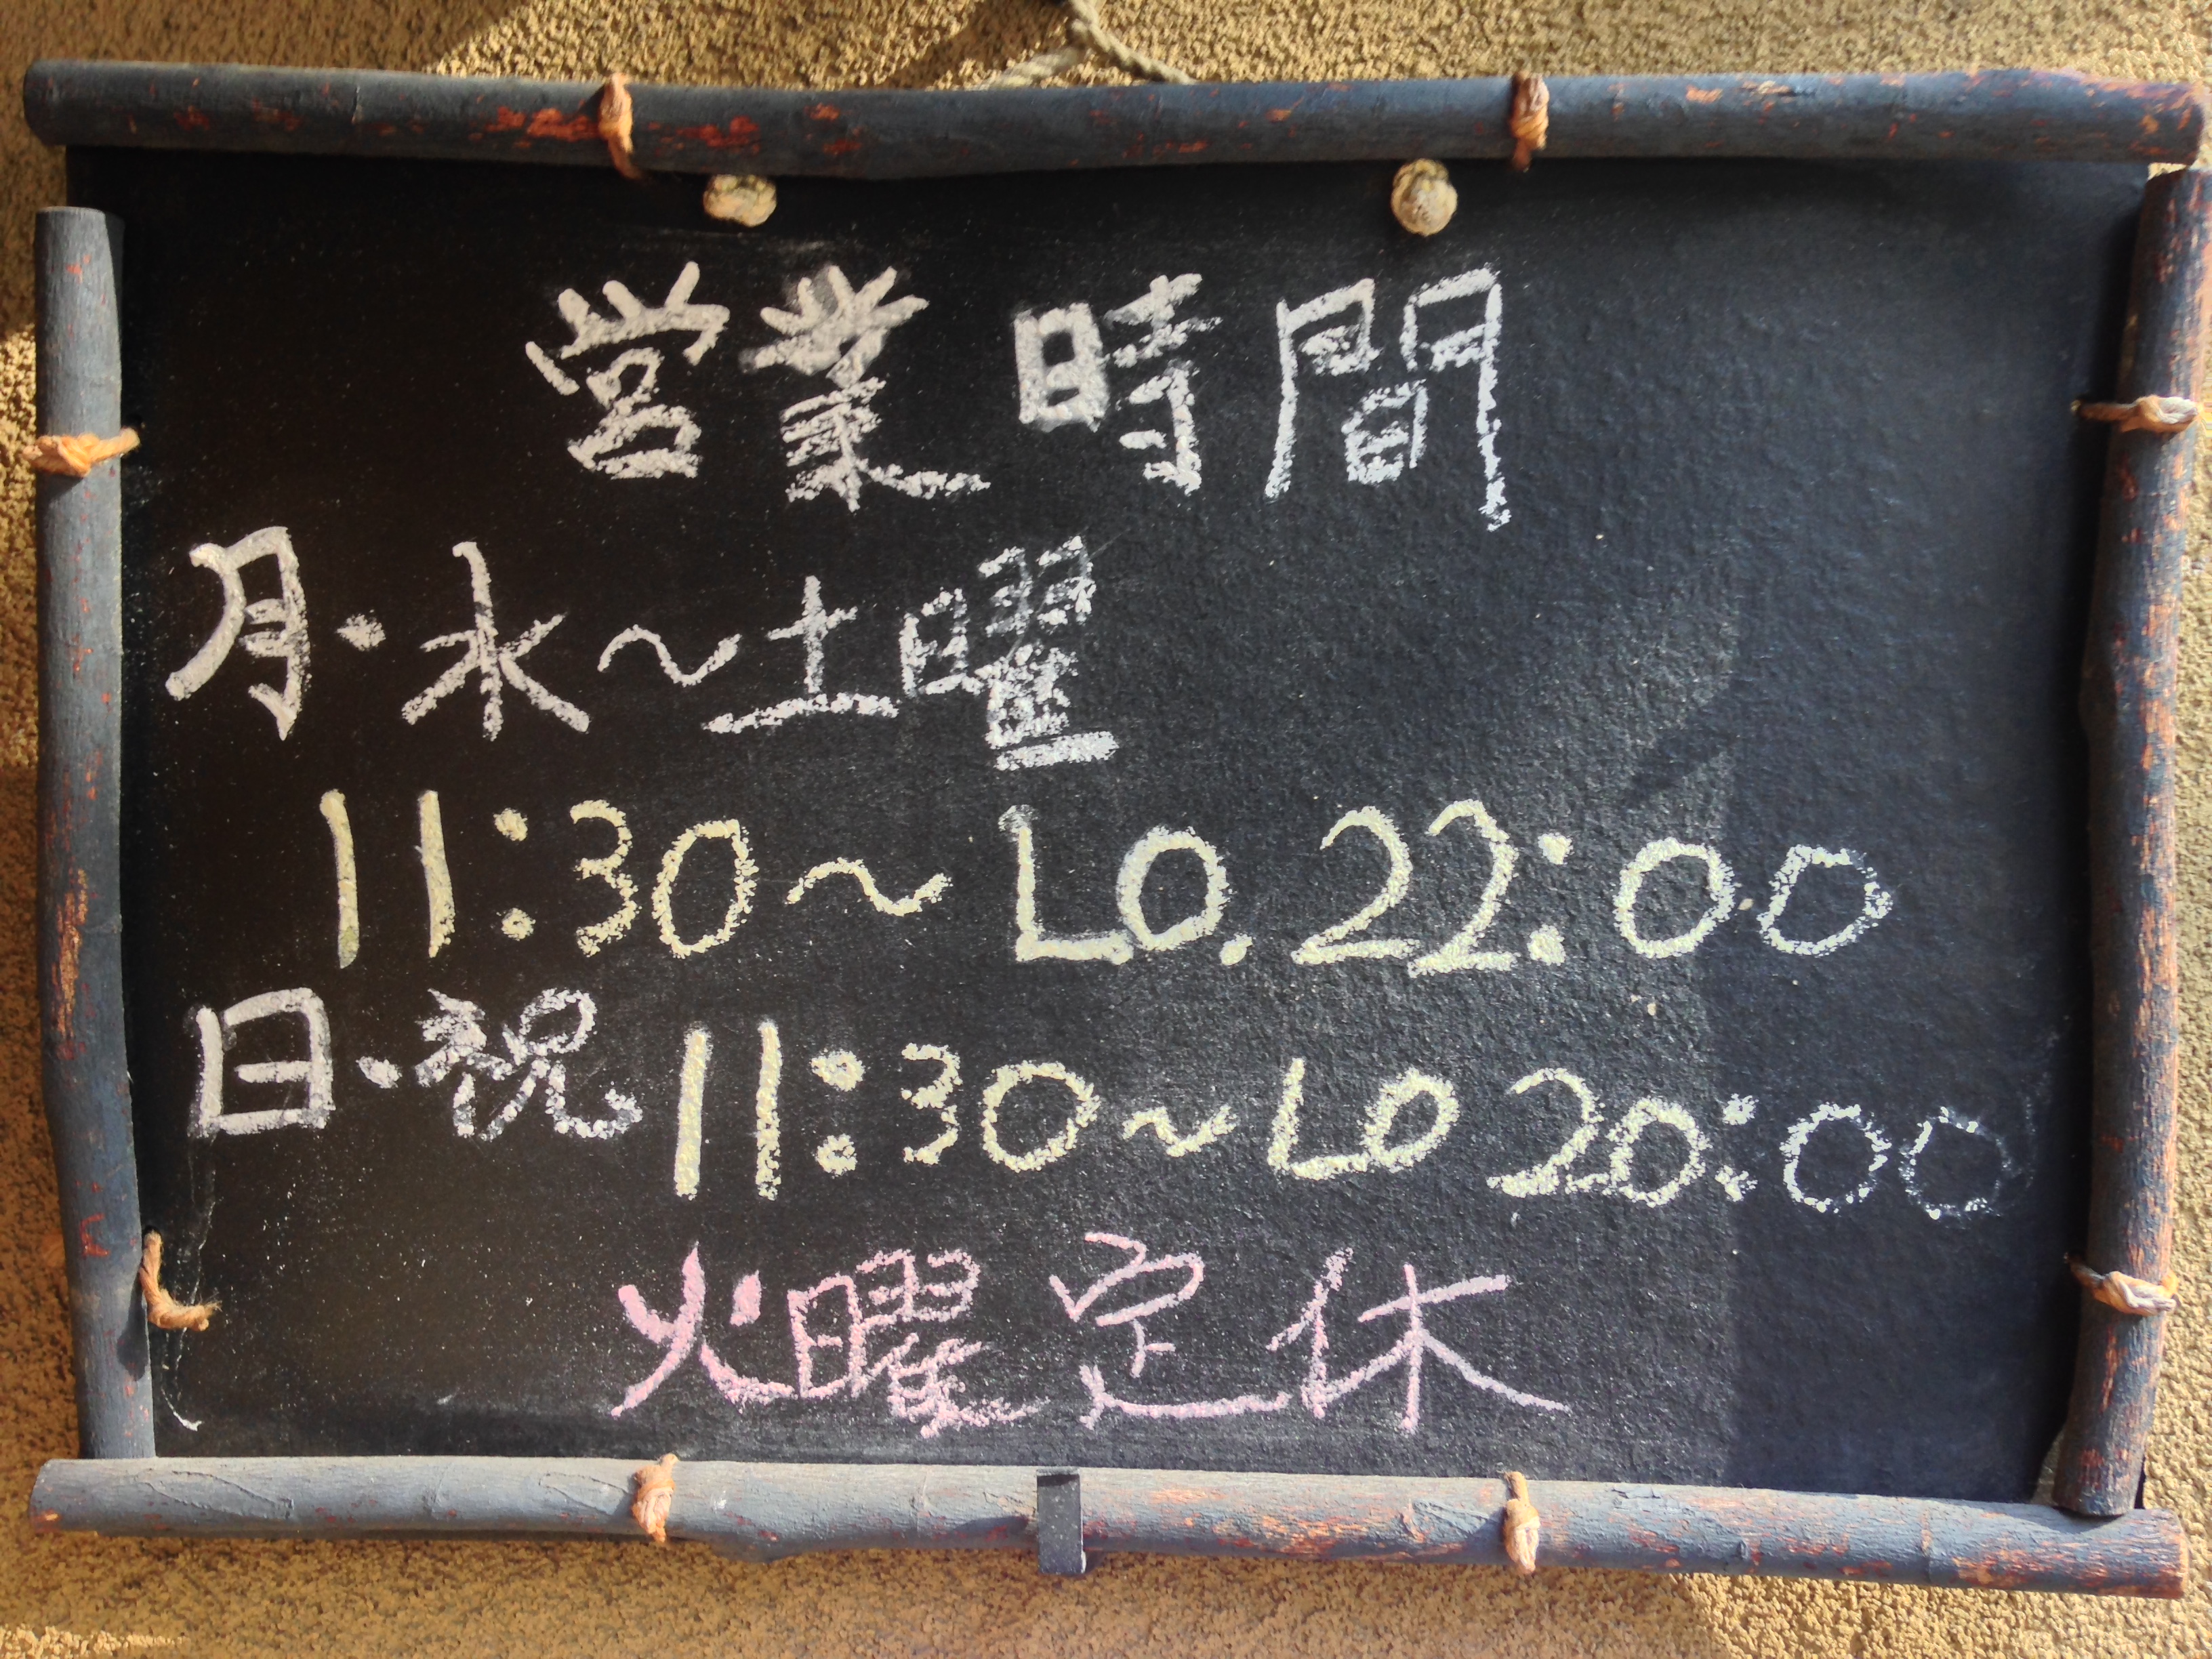 営業時間
月・水～土曜
11:30～LO.22:00
日・祝 11:30～LO 20:00
火曜定休